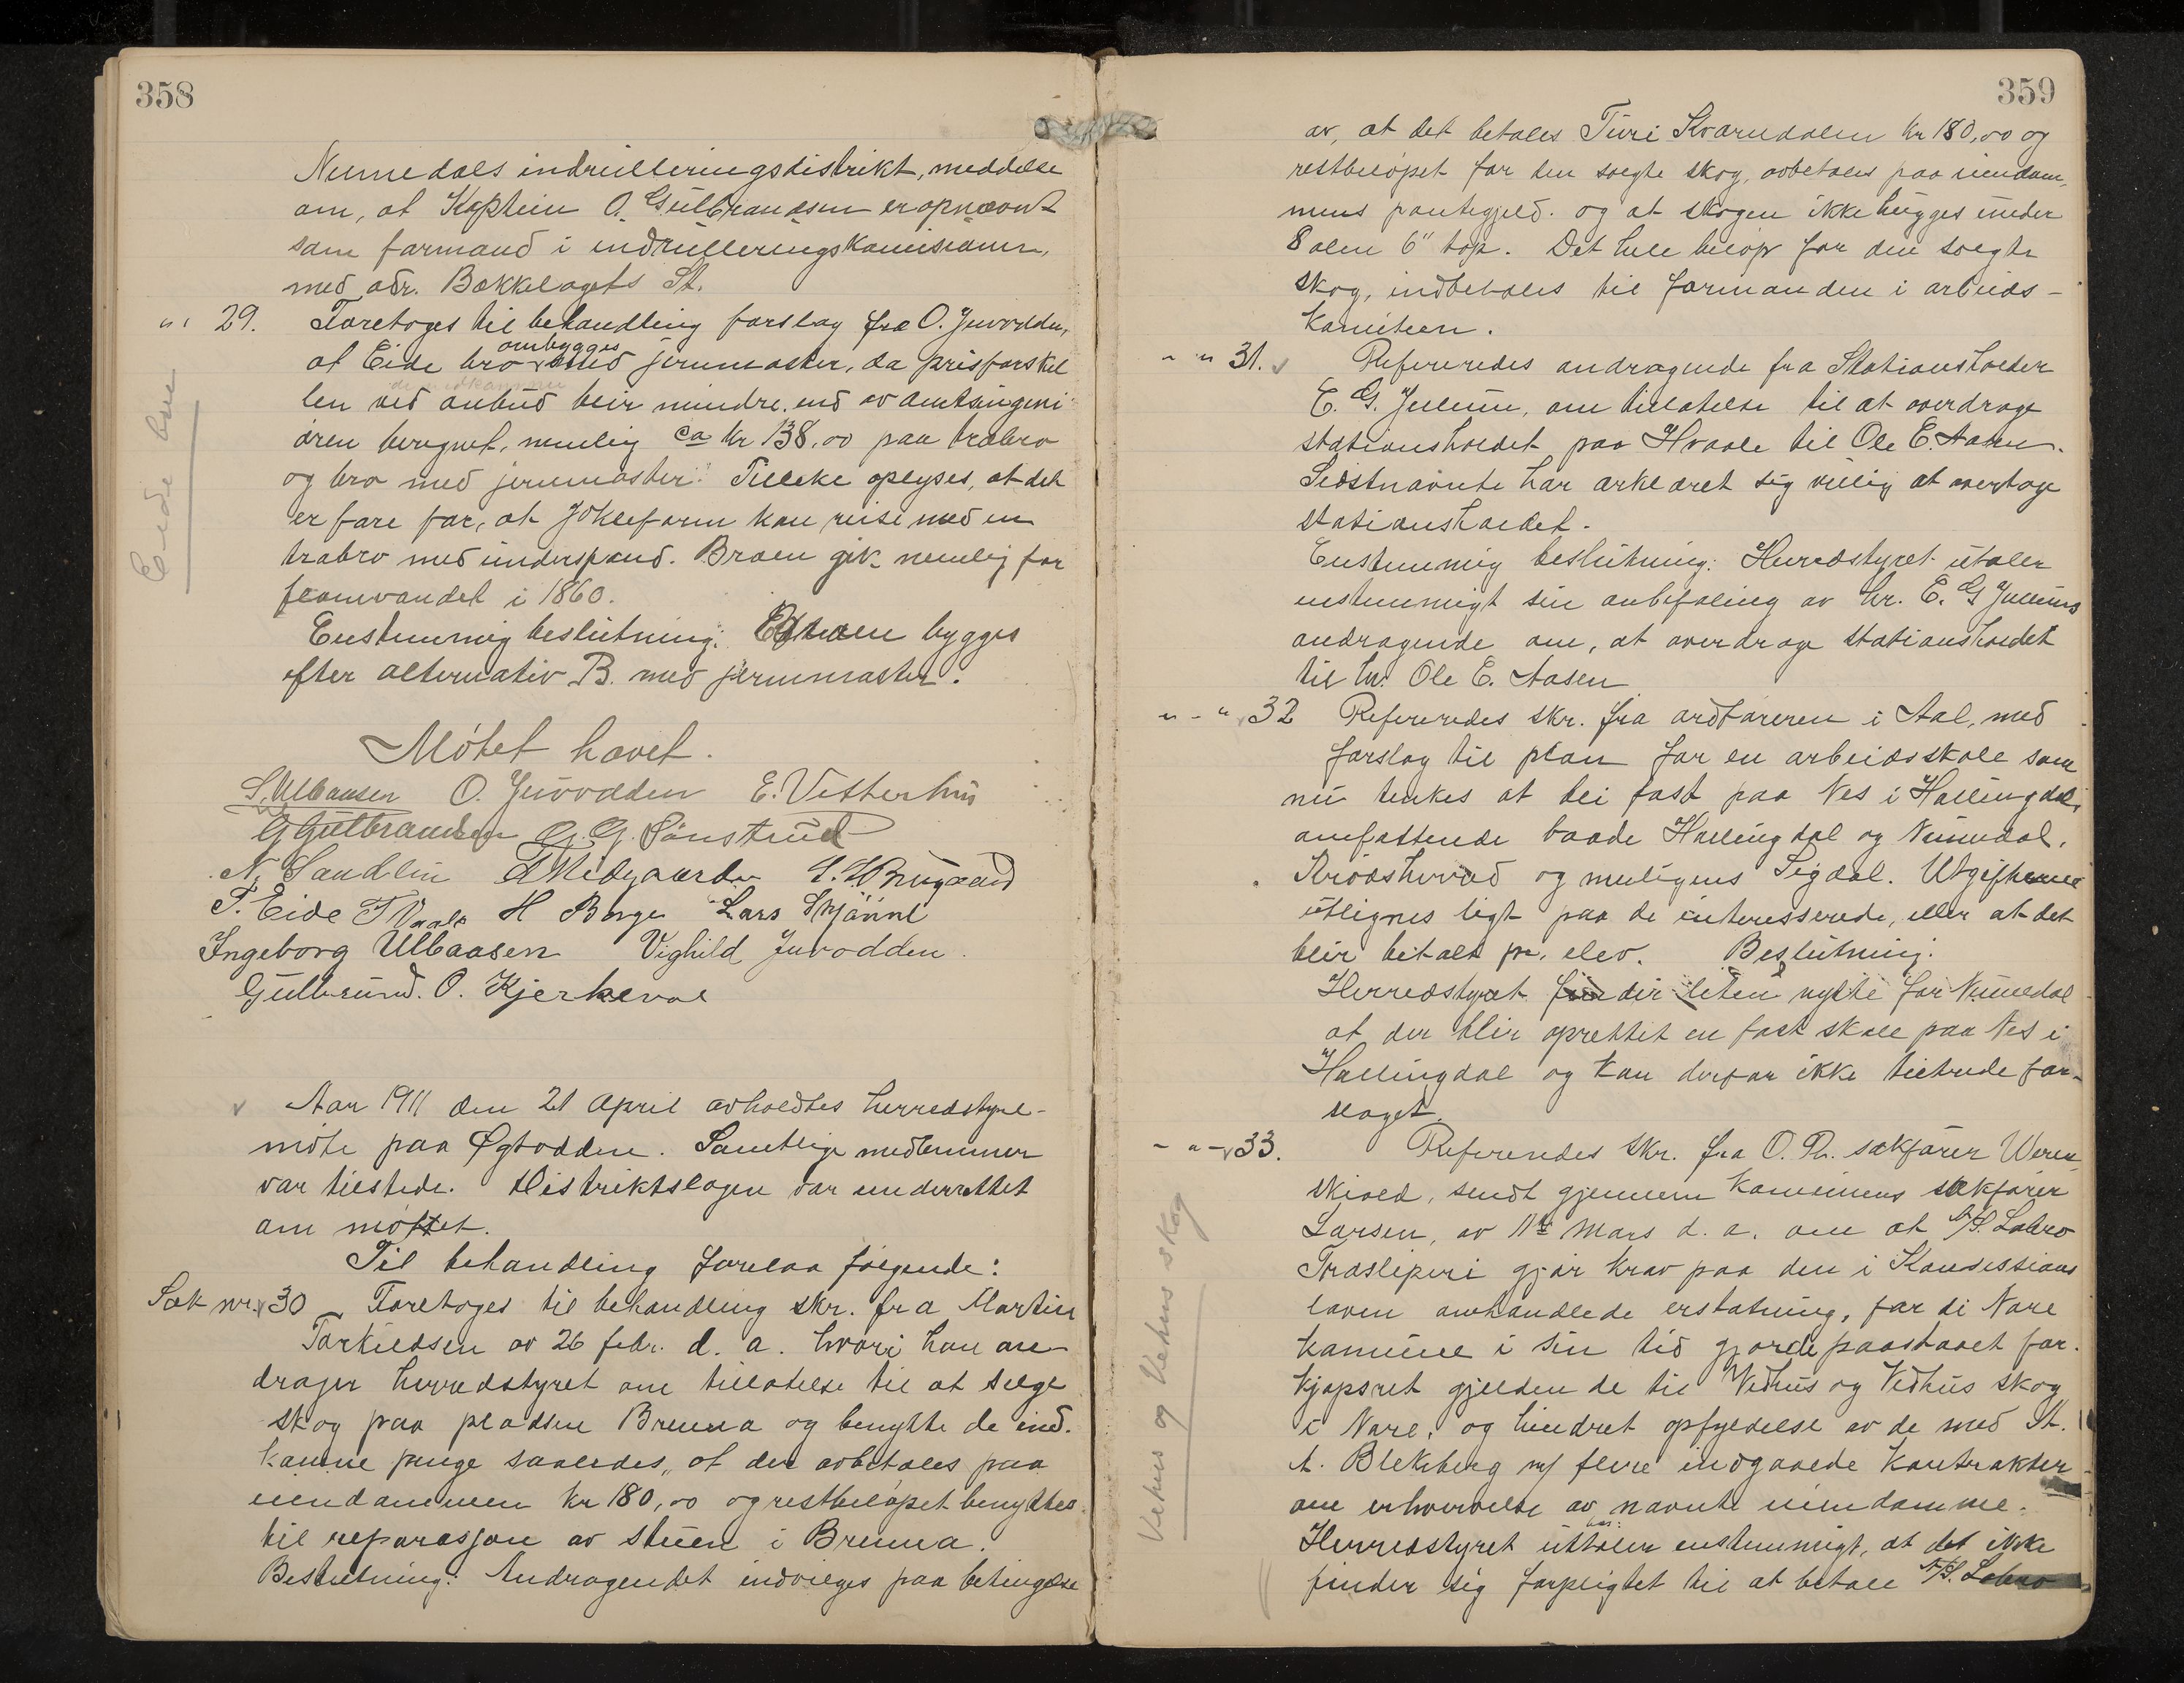 358
Numedals indrulleringsdistrikt, meddelse
om, at Kaptein O. Gulbrandsen er opnævnt
som formand i indrulleringskomisionen,
med adr. Bækkelagets St.
" " 29. Foretoges til behandling forslag fra O. Juvodden,
ombygges
at Eide bro med jernmaster, da prisforskel
de indkomne
len ved anbud blir mindre end av amtsingeni
øren beregnet, nemlig ca kr 138,00 paa træbro
og bro med jernmaster. Tillike oplyses, at det
er fare for, at Jøkleform kan reise med en
træbro med underspænd. Broen gik nemlig for
flomvandet i 1860.
Enstemmig beslutning: Broen bygges
efter alternativ B. med jernmaster.
Eide bro
Møtet hævet.
S. Ulbaasen O. Juvodden E. Vesterhus
G Gulbrandsen G. G. Sønstrud
N. Sandlin T Medgaarden L. L. Brugaard
P. Eide T Vaale H Borge Lars Skjønne
Ingeborg Ulbaasen Vighild Juvodden
Gulbrand. O. Kjerkevol
Aar 1911 den 21 April avholdtes herredstyre-
møte paa Øgtodden. Samtlige medlemmer
var tilstede. Distriktslægen var underrettet
om møtet.
Til behandling forelaa følgende:
Sak nr. 30 Foretoges til behandling skr. fra Martin
Torkildsen av 26 febr. d. a. hvori han an-
drager herredstyret om tillatelse til at selge
skog paa pladsen Brenna og benytte de ind-
komne penge saaledes, at der avbetales paa
eiendommen kr 180,00 og restbeløpet benyttes
til reparasjon av stuen i Brenna.
Beslutning: Andragendet indvilges paa betingelse
359
av, at det betales Turi Kvarndalen kr 180,00 og
restbeløpet for den solgte skog, avbetales paa eiendom-
mens pantegjeld. og at skogen ikke hugges under
8 alen 6" top. Det hele beløp for den solgte
skog, indbetales til formanden i arbeids-
komiteen.
- " 31. Refereredes andragende fra Stationsholder
E. G. Jullum, om tillatelse til at overdrage
stationsholdet paa Hvaale til Ole E. Aasen.
Sidstnævnte har erklæret sig villig at overtage
stationsholdet.
Enstemmig beslutning: Herredstyret utaler
enstemmigt sin anbefaling av hr. E. G Jullums
andragende om, at overdrage stationsholdet
til hr. Ole E. Aasen
" - " 32 Refereredes skr. fra ordføreren i Aal, med
forslag til plan for en arbeidsskole som
nu tenkes at bli fast paa Nes i Hallingdal,
omfattende baade Hallingdal og Numedal,
Krødsherred og muligens Sigdal. Utgifterne
utlignes ligt paa de interesserede, eller at det
blir betalt pr. elev. Beslutning:
Herredstyret finder liten nytte for Numedal
at der blir oprettet en fast skole paa Nes i
Hallingdal og kan derfor ikke tiltræde for-
slaget.
- " - 33. Refereredes skr. fra O. R. sakfører Weren-
skiold, sendt gjennem kommunens sakfører
Larsen, av 11te Mars d. a. om at A/S. Labro
Træsliperi gjør krav paa den i Konsessions
loven omhandlede erstatning, for di Nore
kommune i sin tid gjorde paastaaet for-
kjøpsret gjelden de til Vedhus og Vedhus skog
i Nore, og hindret opfyldelse av de med St.
A. Blekeberg m/ flere indgaaede kontrakter
om erhvervelse av nævnte eiendomme.
Herredstyret uttaler enstemmigt, at det ikke
finder sig forpligtet til at betale A/S. Labro
Vehus og Vehus skog